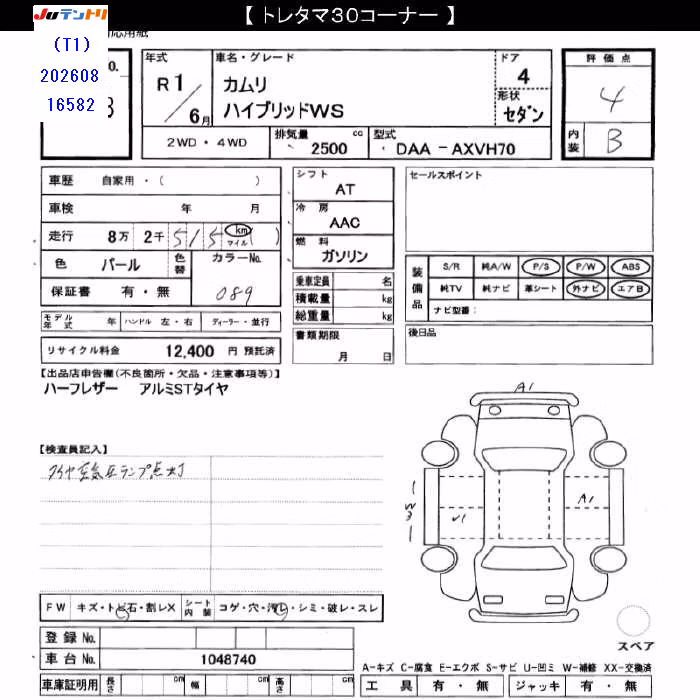 【 トレタマ30コーナー 】
JUテントリ
(T1)
202608
16582
応用紙
o.
3
年式
R1/6月
車名・グレード
カムリ
ハイブリッドWS
ドア
4
形状
セダン
評価点
4
内装
B
2WD・4WD
排気量
2500 cc
型式
DAA-AXVH70
車歴 自家用・( )
車検 年 月
走行 8万 2千 515 km マイル ( )
色 パール 色替 カラーNo.
保証書 有・無 089
モデル年式 年 ハンドル 左・右 ディーラー・並行
リサイクル料金 12,400 円 預託済
シフト
AT
冷房
AAC
燃料
ガソリン
乗車定員 名
積載量 kg
総重量 kg
書類期限
月 日
セールスポイント
装備品
S/R 純A/W P/S P/W ABS
純TV 純ナビ 革シート 外ナビ エアB
ナビ型番:
後日品
【出品店申告欄(不良箇所・欠品・注意事項等)】
ハーフレザー アルミSTタイヤ
【検査員記入】
タイヤ空気圧ランプ点灯
A1
W3
A1
FW キズ・トビ石・割レX シート内装 コゲ・穴・汚レ・シミ・破レ・スレ
登録No.
車台No. 1048740
車庫証明用 長さ cm 幅 cm 高さ cm
スペア
A-キズ C-腐食 E-エクボ S-サビ U-凹ミ W-補修 XX-交換済
工具 有・無 ジャッキ 有・無